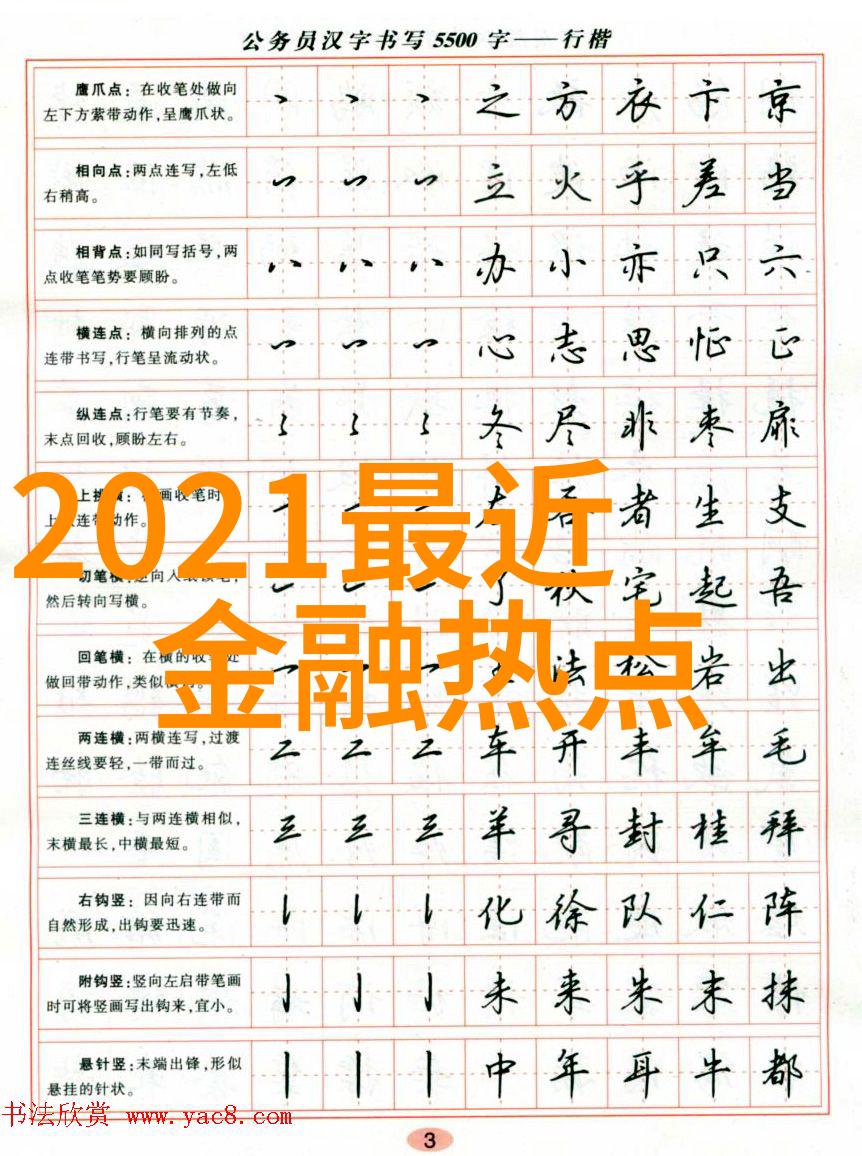 公务员汉字书写 5500 字——行楷
鹰爪点：在收笔处做向
左下方萦带动作，呈鹰爪状。
之 方 衣 卞 京
相向点：两点连写，左低
右稍高。
立 火 乎 差 当
相背点：如同写括号，两
点收笔笔势要顾盼。
办 小 亦 只 六
横连点：横向排列的点
连带书写，行笔呈流动状。
心 志 思 怔 正
纵连点：行笔要有节奏，
末点回收，顾盼左右。
冬 尽 非 枣 扉
2021最近
画收笔时
连带动作。
者 生 支
切笔横
然后转向写横。
宅 起 吾
金融热点
回笔横：在横的收
做回带动作，类似
法 松 岩 出
两连横：两横连写，过渡
连丝线要轻，一带而过。
二 二 二 车 开 丰 牟 毛
三连横：与两连横相似，
末横最长，中横最短。
三 三 三 羊 寻 封 桂 拜
右钩竖：因向右连带而
自然形成，出钩要迅速。
化 徐 队 仁 阵
附钩竖：竖向左启带笔画
时可将竖画写出钩来，宜小。
未 来 朱 末 抹
悬针竖：末端出锋，形似
悬挂的针状。
中 年 耳 牛 都
书法欣赏 www.yac8.com
3